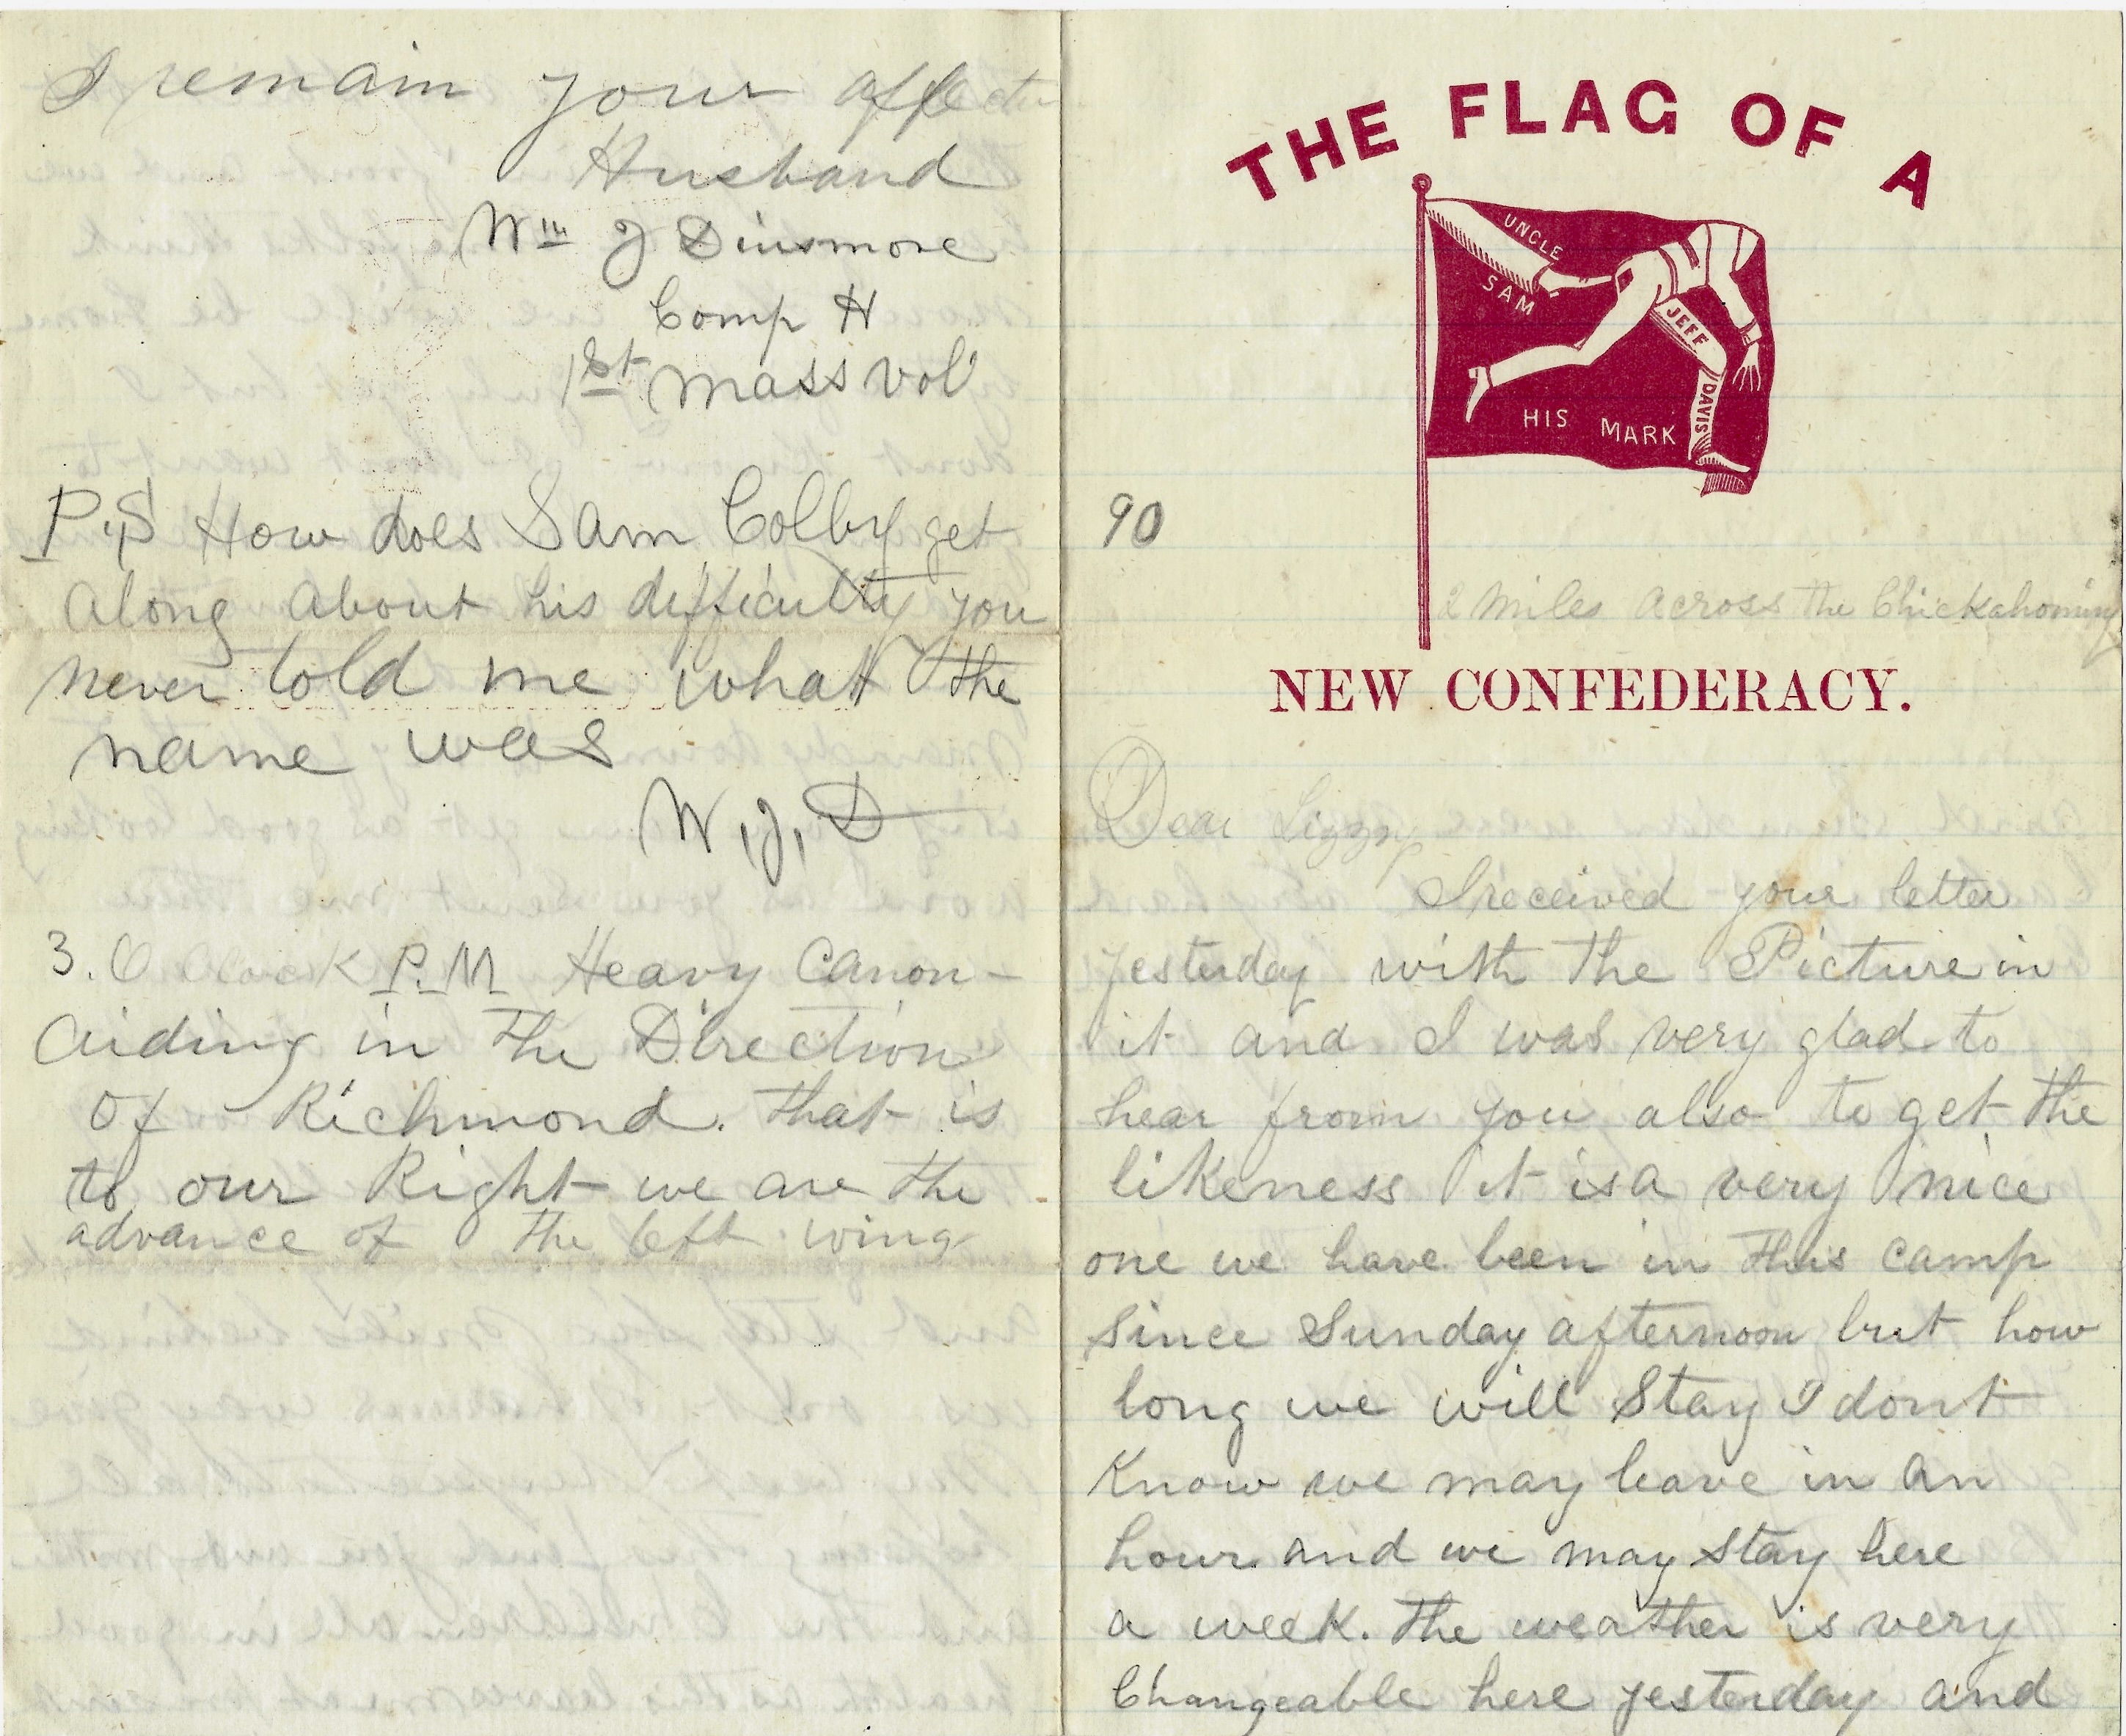 I remain your affectu
Husband
Wm J Dinsmore
Comp H
1st Mass vol
P.S How does Sam Colby get
along about his difficulty you
never told me what the
name was
W, J, D
3. O Clock P.M Heavy Canon-
aiding in the Direction
of Richmond. that is
to our Right we are the
advance of the left wing
THE FLAG OF A
UNCLE
SAM
JEFF
DAVIS
HIS MARK
90
2 Miles across the Chickahominy
NEW CONFEDERACY.
Dear Lizzy
I received your letter
yesterday with the Picture in
it and I was very glad to
hear from you also to get the
likeness it is a very nice
one we have been in this camp
since Sunday afternoon but how
long we will Stay I dont
Know we may leave in an
hour and we may stay here
a week. the weather is very
Changeable here yesterday and